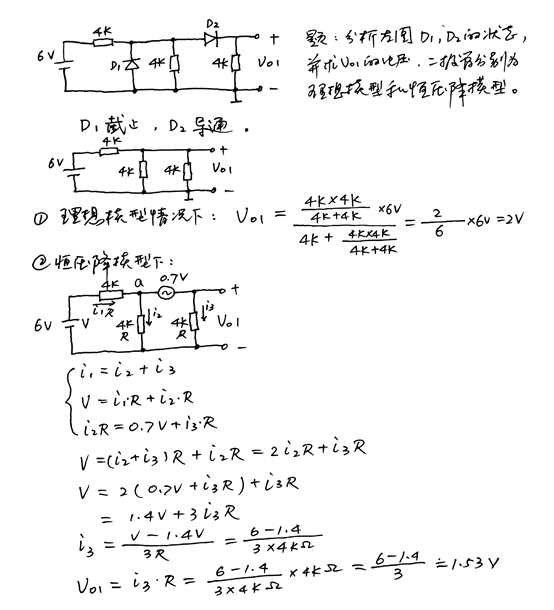 4K
D2
+
6V
D1
4K
4K
Vo1
-
题：分析左图 D1, D2 的状态,
并求 Vo1 的电压. 二极管分别为
理想模型和恒压降模型。
D1 截止, D2 导通。
4K
+
6V
4K
4K
Vo1
-
① 理想模型情况下： Vo1 = (4K×4K / 4K+4K ×6V) / (4K + 4K×4K / 4K+4K) = 2/6 ×6V = 2V
② 恒压降模型下：
4K
a
0.7V
+
i1R
i2
i3
6V
V
4K
R
4K
R
Vo1
-
i1 = i2 + i3
V = i1·R + i2·R
i2R = 0.7V + i3·R
V = (i2+i3)R + i2R = 2i2R + i3R
V = 2(0.7V + i3R) + i3R
= 1.4V + 3i3R
i3 = V-1.4V / 3R = 6-1.4 / 3×4KΩ
Vo1 = i3·R = 6-1.4 / 3×4KΩ × 4KΩ = 6-1.4 / 3 ≐ 1.53V